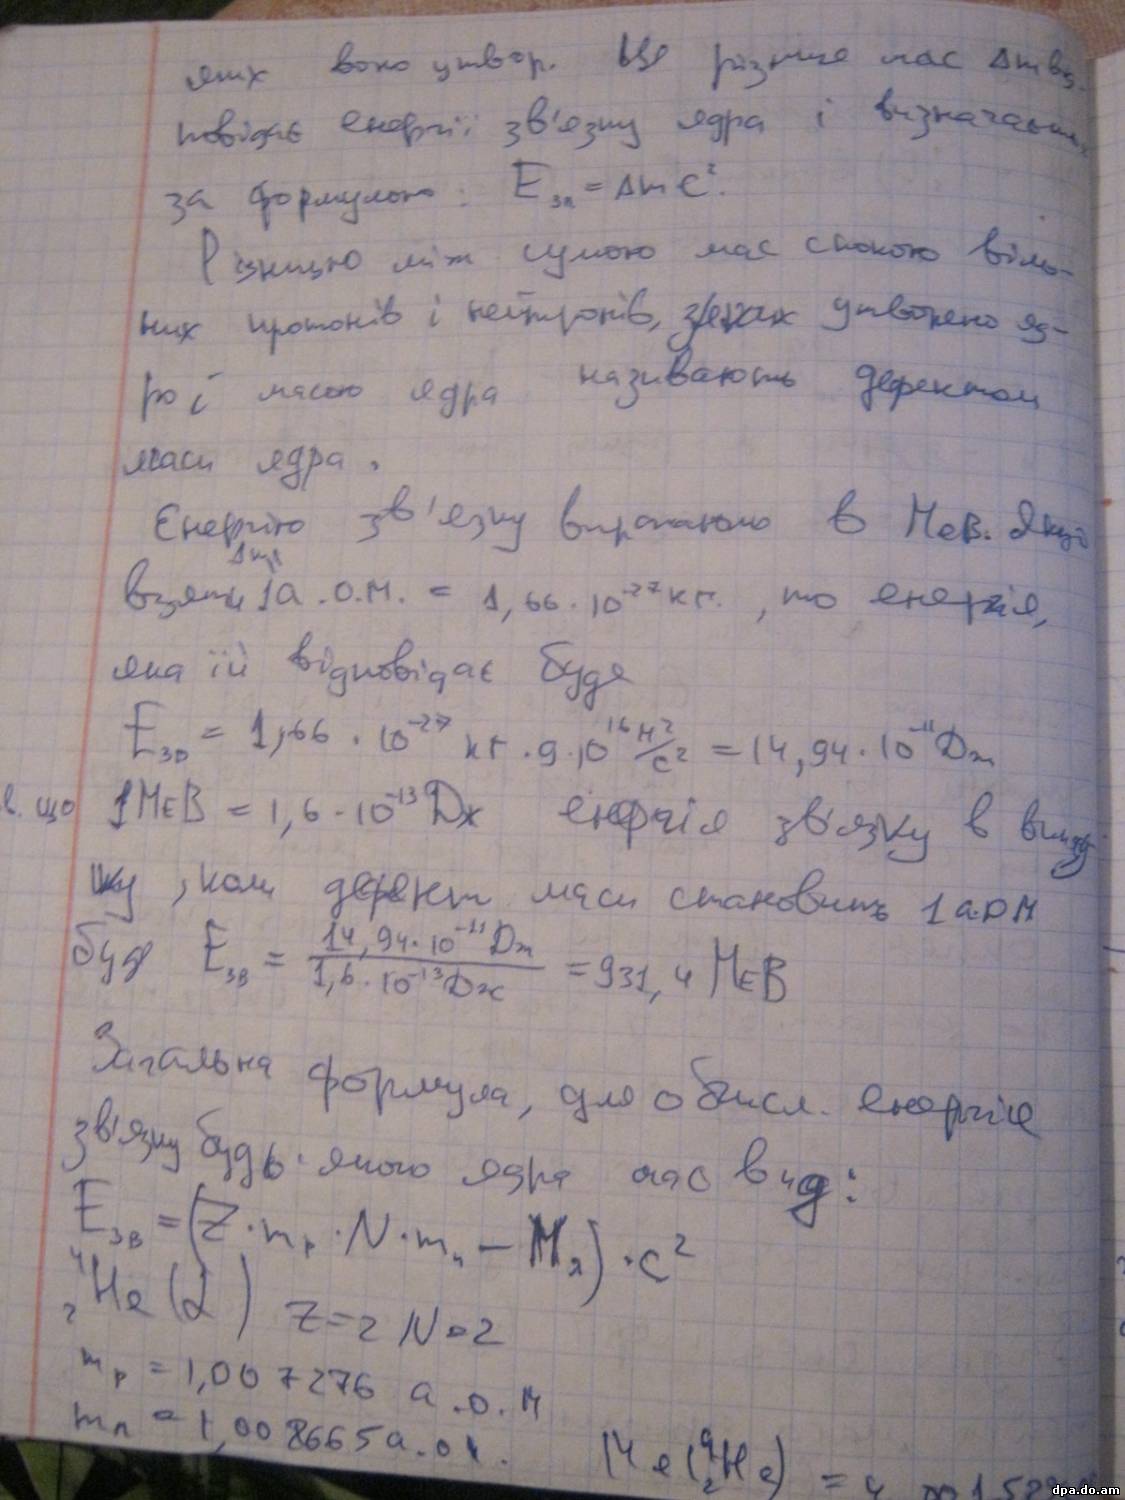 яких воно утвор. Це різниця мас Δm від-
повідає енергії зв'язку ядра і визначаєть
за формулою: Eзв = Δm c².
Різницю між сумою мас спокою віль-
них протонів і нейтронів, з яких утворено яд-
ро і масою ядра називають дефектом
маси ядра.
Енергію зв'язку виражають в МеВ. Якщо
Δm
взяти 1 а.о.м. = 1,66·10⁻²⁷ кг., то енергія,
яка їй відповідає буде
Eзв = 1,66 · 10⁻²⁷ кг · 9·10¹⁶ м²/с² = 14,94·10⁻¹¹ Дж
в. що 1 МєВ = 1,6·10⁻¹³ Дж енергія зв'язку в випад
ку, коли дефект маси становить 1 а.о.м
буде Eзв = 14,94·10⁻¹¹ Дж / 1,6·10⁻¹³ Дж = 931,4 МєВ
Загальна формула, для обчисл. енергіє
зв'язку будь-якого ядра має вид:
Eзв = (Z·mp·N·mn − Mя)·c²
⁴₂He (α) Z=2 N=2
mp = 1,007276 а.о.м
mn = 1,008665 а.о.м. (⁴₂He) = 4
dpa.do.am